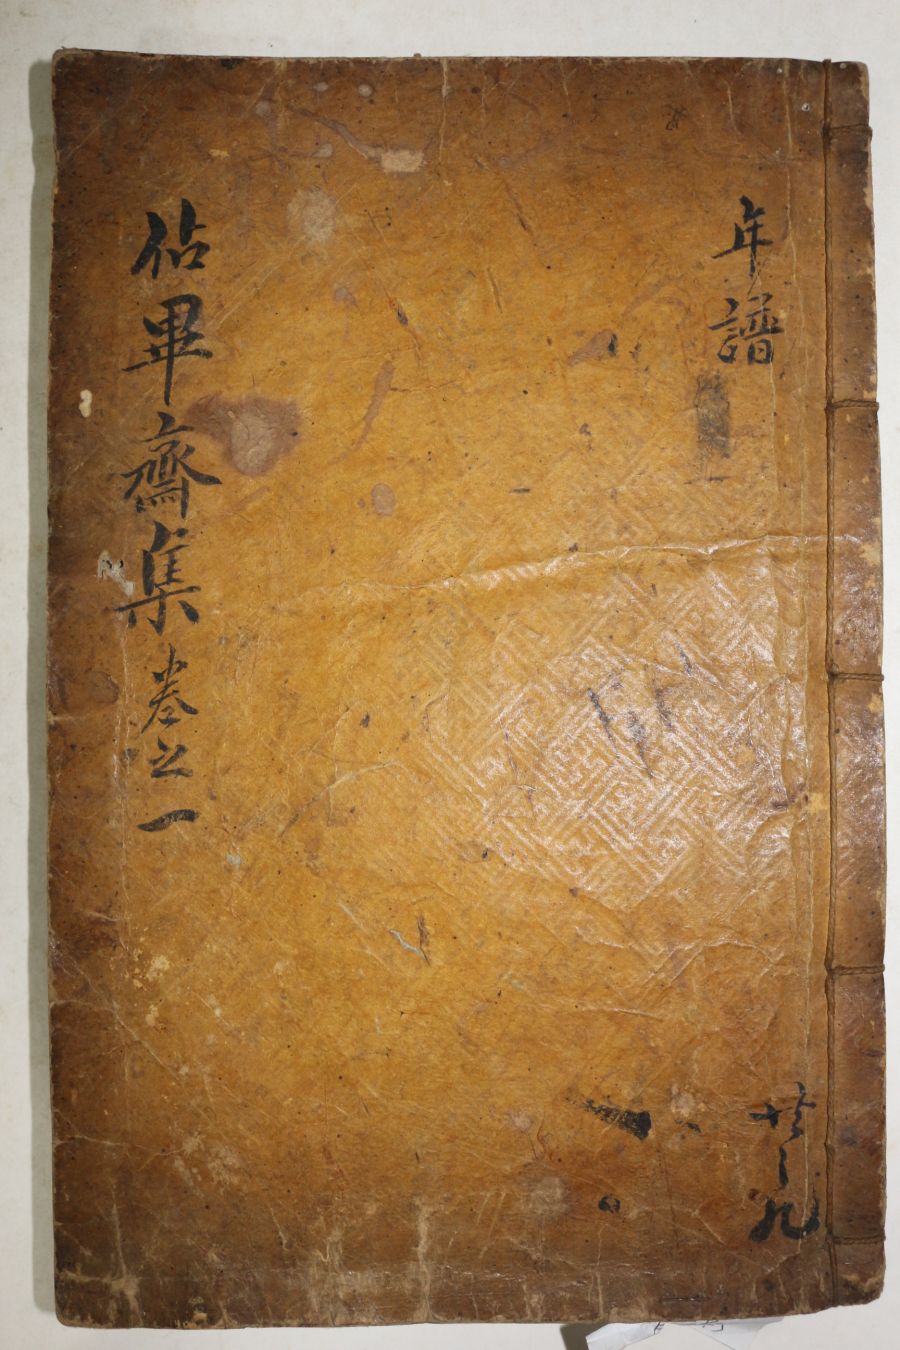 年譜
佔畢齋集卷之一